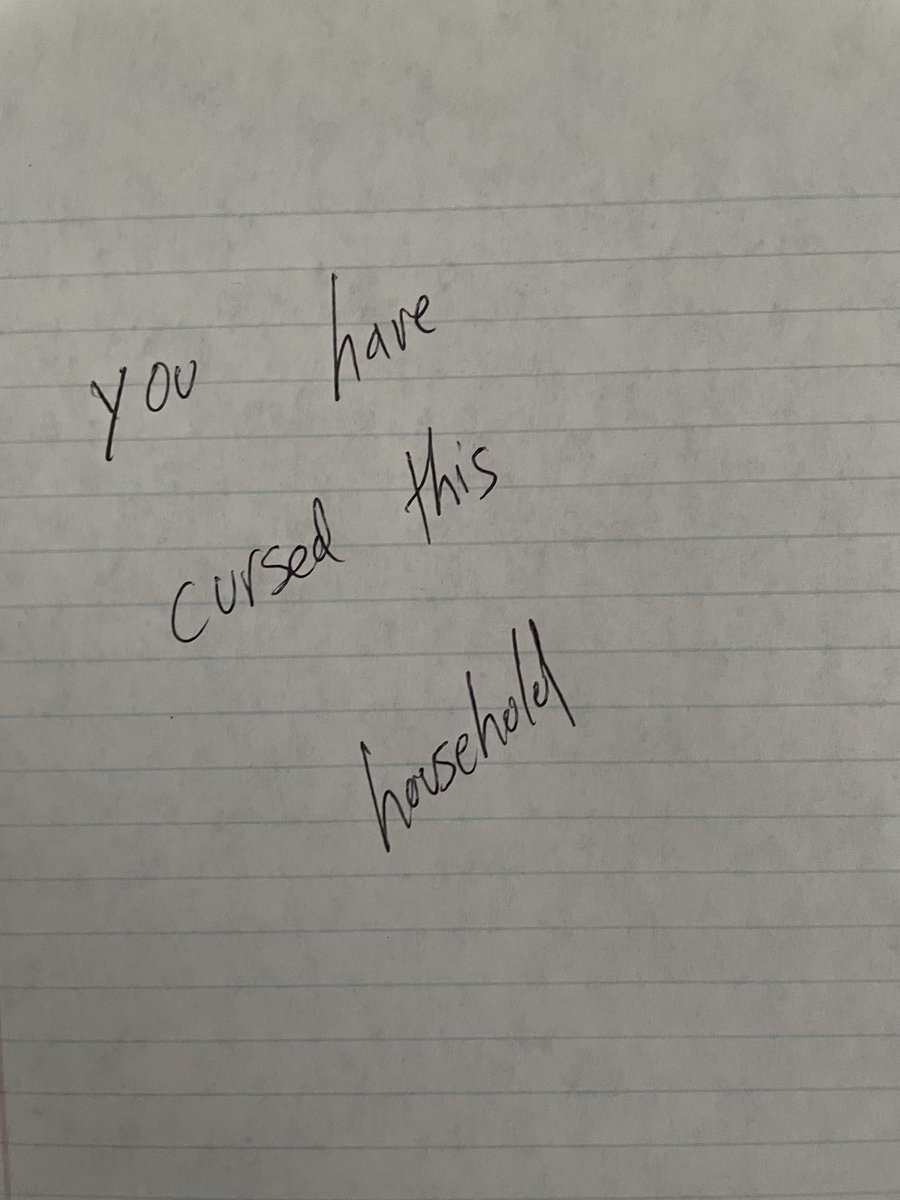 you have
cursed this
household